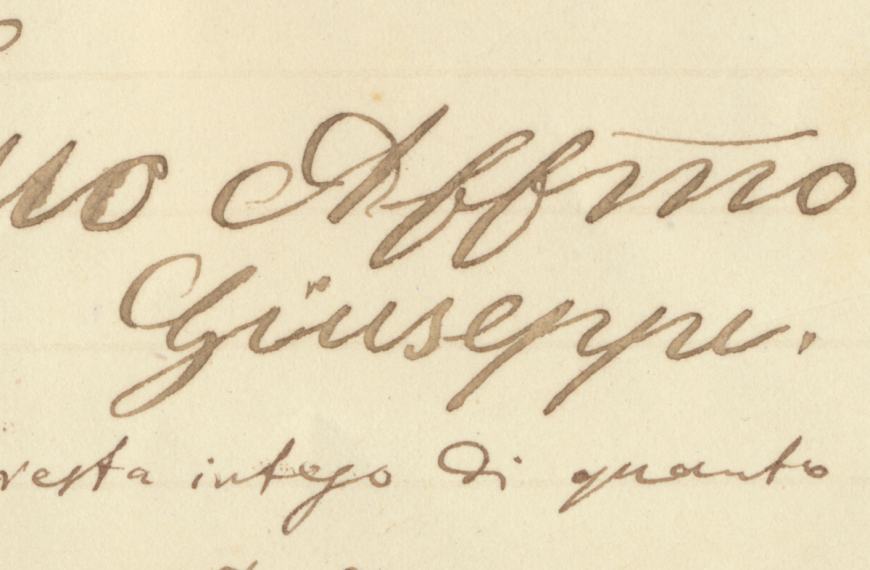 Affmo
Giuseppe.
resta intego di quanto